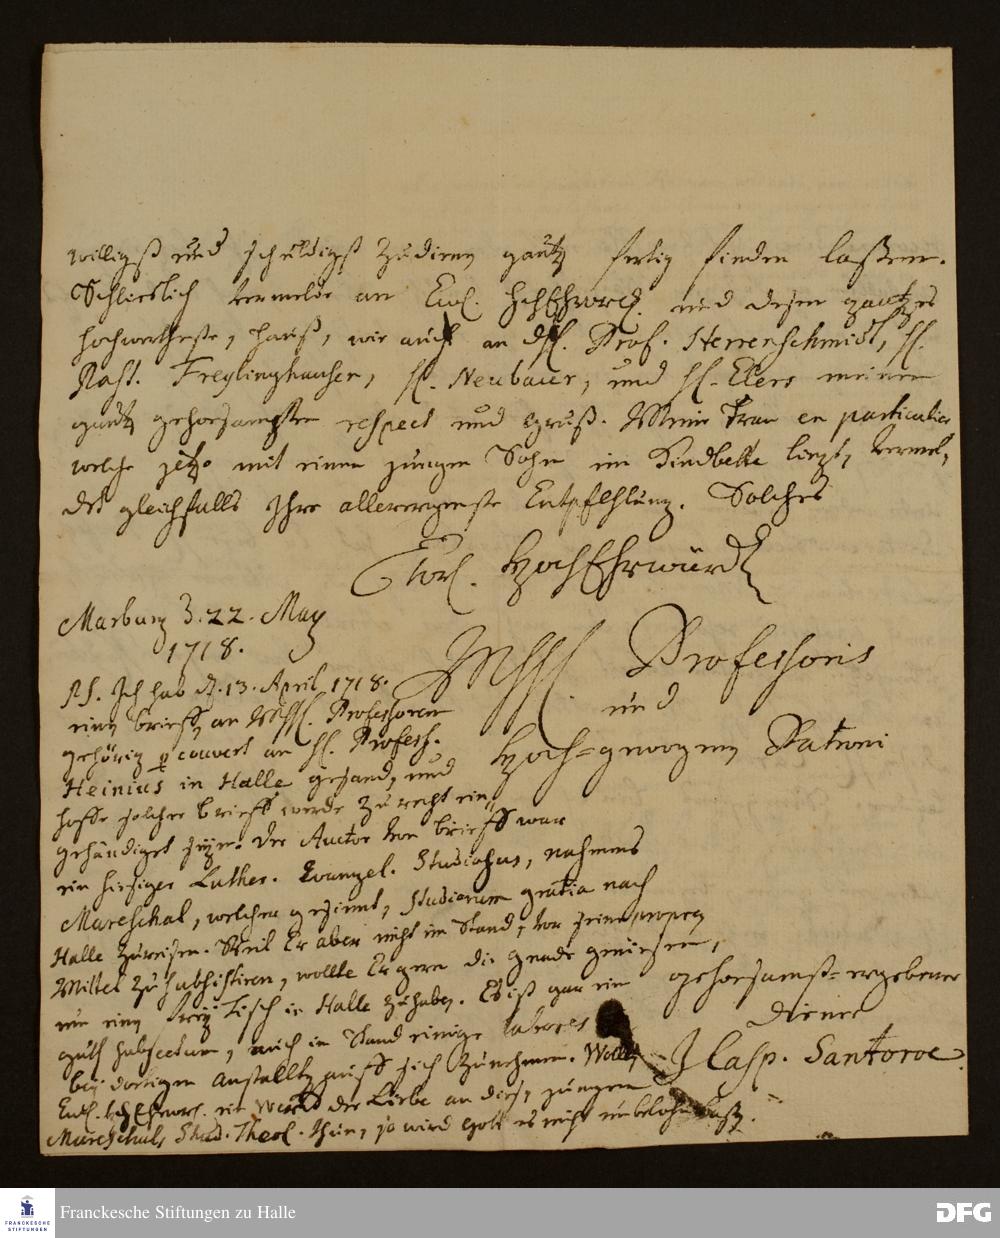 willigst und schuldigst zu dienen gantz fertig finden laßen.
Schlieslich vermelde an Ewl. HchEhrwrd. und dejen gantzes
hochwerthestes Hauß, wie auch an H. Prof. Herrenschmidt, H.
Past. Freylinghausen, H. Neubauer, und H. Elers meinen
gantz gehorsamsten respect und gruß. Meine Frau en particulier
welche jetzo mit einem jungen Sohn im Kindbette liegt, vermel-
det gleichfalls Ihre allerergebenste Entpfehlung. Solches
Ewl. HochEhrwürd.
Marburg 3. 22. May
1718.
Professoris
und
Hoch-gewognen Patroni
PS. Ich hab d. 13. April 1718.
einen brieff an MHH. Professoren
gehörig p couvert an H. Profess.
Heinius in Halle gesand, und
hoffe solcher brieff werde zu recht ein-
gehändiget seyn. Der Auctor vom brieff war
ein hiesiger Luther. Evangel. Studiosus, nahmens
Mareschal, welcher gesinnt, studiorum gratia nach
Halle zu reisen. Weil Er aber nicht im Stand, von seinen
Mittel zu subsistiren, wollte Er gern die gnade geniesen,
um einen frey Tisch in Halle zu haben. Es ist gar ein
guth subjectum, auch im Stand einige labores
bey dortigen anstallten auff sich zu nehmen. Wollen
Ewl. HchEhrwrd. ein Werck der Liebe an dies. jungen
Mareschal, Stud. Theol. thun, so wird Gott es nicht unbelohnt laß.
gehorsamst-ergebener
diener
J Casp. Santoroc
Franckesche Stiftungen zu Halle
FRANCKESCHE
STIFTUNGEN
DFG